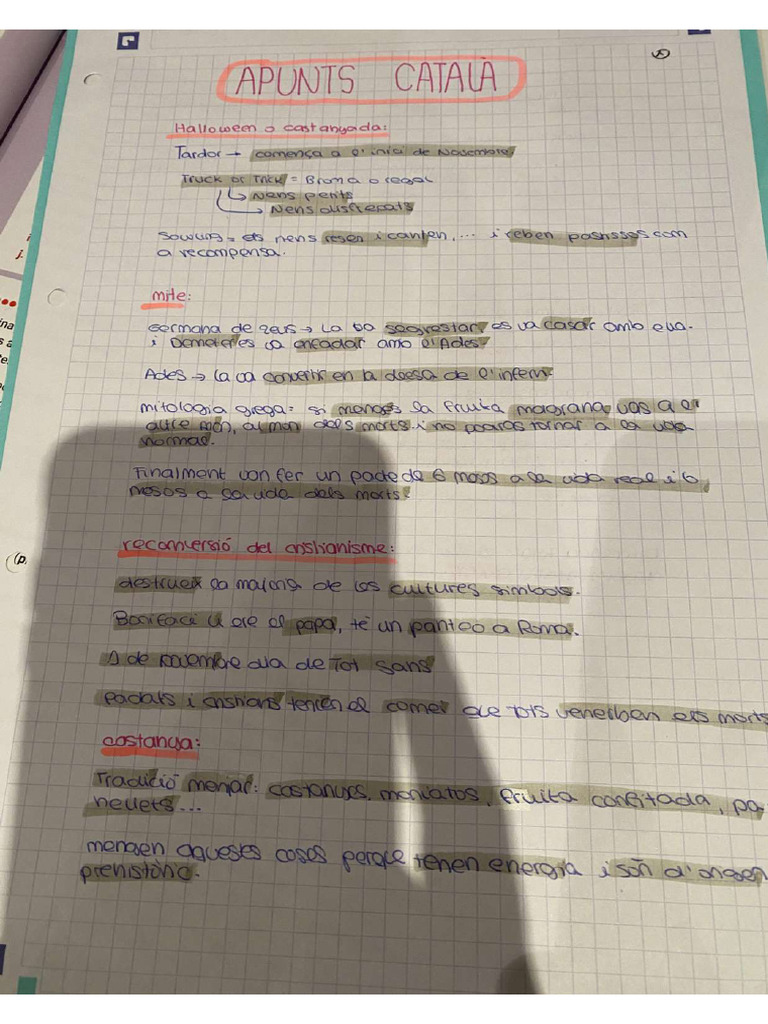 APUNTS CATALÀ
Halloween o castanyada:
Tardor → comença a l'inici de Novembre
Truck or Trick = Broma o regal
↳ Nens petits
→ Nens disfreçats
= els nens resen i canten, ... i reben pastissos com
a recompensa.
mite:
Germana de zeus → La va segrestar, es va casar amb ella.
i Demeter es va enfadar amb l'Ades.
Ades → La va convertir en la deessa de l'infern.
mitologia grega = si menges la fruita magrana vas a l'
altre món, al mon dels morts i no podras tornar a la vida
normal.
Finalment van fer un pacte de 6 mesos a la vida real i 6
mesos a la vida dels morts.
reconversió del cristianisme:
destrueix la majoria de les cultures simbols.
Bonifaci era el papa, té un panteo a Roma.
1 de novembre dia de Tot Sans
i cristians tenien el que tots els morts
castanya:
Tradició menjar: castanyes, moniatos, fruita confitada, pa
nellets...
mengen aqueses coses perque tenen energía i són d'origen
prehistòric.